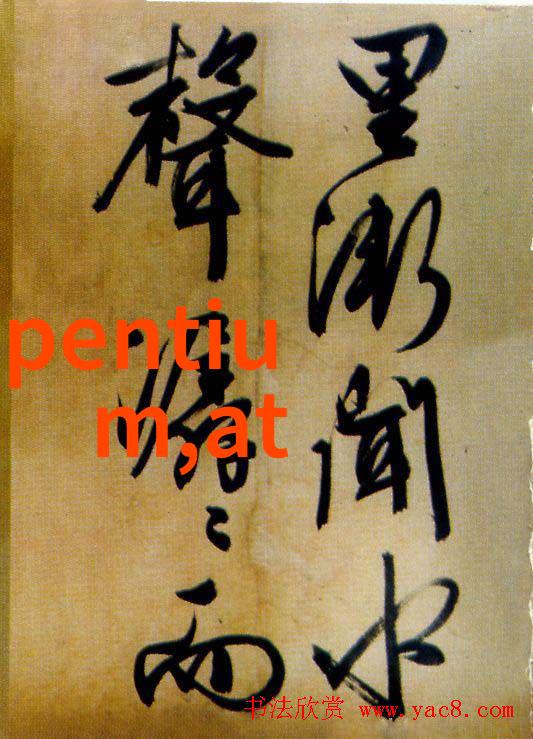 里漸聞水
聲潺々而
pentiu
m,at
书法欣赏 www.yac8.com